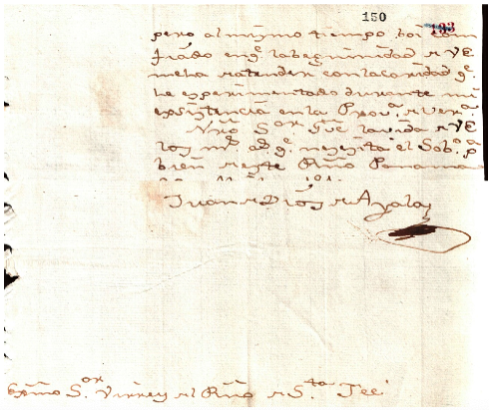 150
133
pero al mismo tiempo boi con
fiado en q.e la begninidad de VE
me ha de atender con la caridad q.e
he experimentado durante mi
existencia en la Prov.a de Ver.a
Nro S.or gue la vida de VE
los m.s a.s q.e nezesita el Sob.o p.a
bien de este Rño Panama
Juan de Dios de Ayala
Exmo S.or Virrey del Rño de S.ta Feé